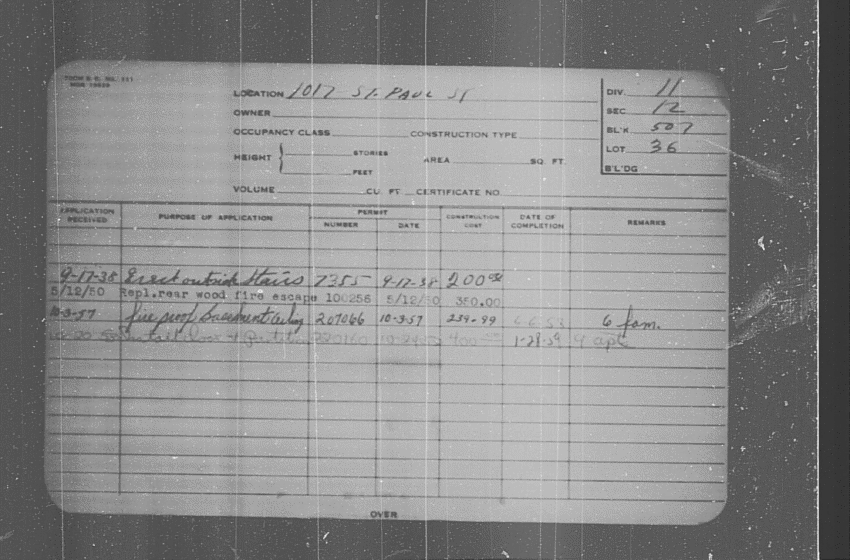 LOCATION 1017 ST. PAUL ST
DIV. 11
OWNER
SEC 12
OCCUPANCY CLASS CONSTRUCTION TYPE
BL'K 507
HEIGHT STORIES FEET AREA SQ. FT.
LOT 36
B'L'DG
VOLUME CU. FT. CERTIFICATE NO.
APPLICATION RECEIVED PURPOSE OF APPLICATION PERMIT NUMBER DATE CONSTRUCTION COST DATE OF COMPLETION REMARKS
9-17-38 Erect outside stairs 7355 9-17-38 200
5/12/50 Repl.rear wood fire escape 100256 5/12/50 350.00
10-3-57 fire proof basement ceiling 207066 10-3-57 239.99 6 fam.
1-28-59 4 apt
OVER